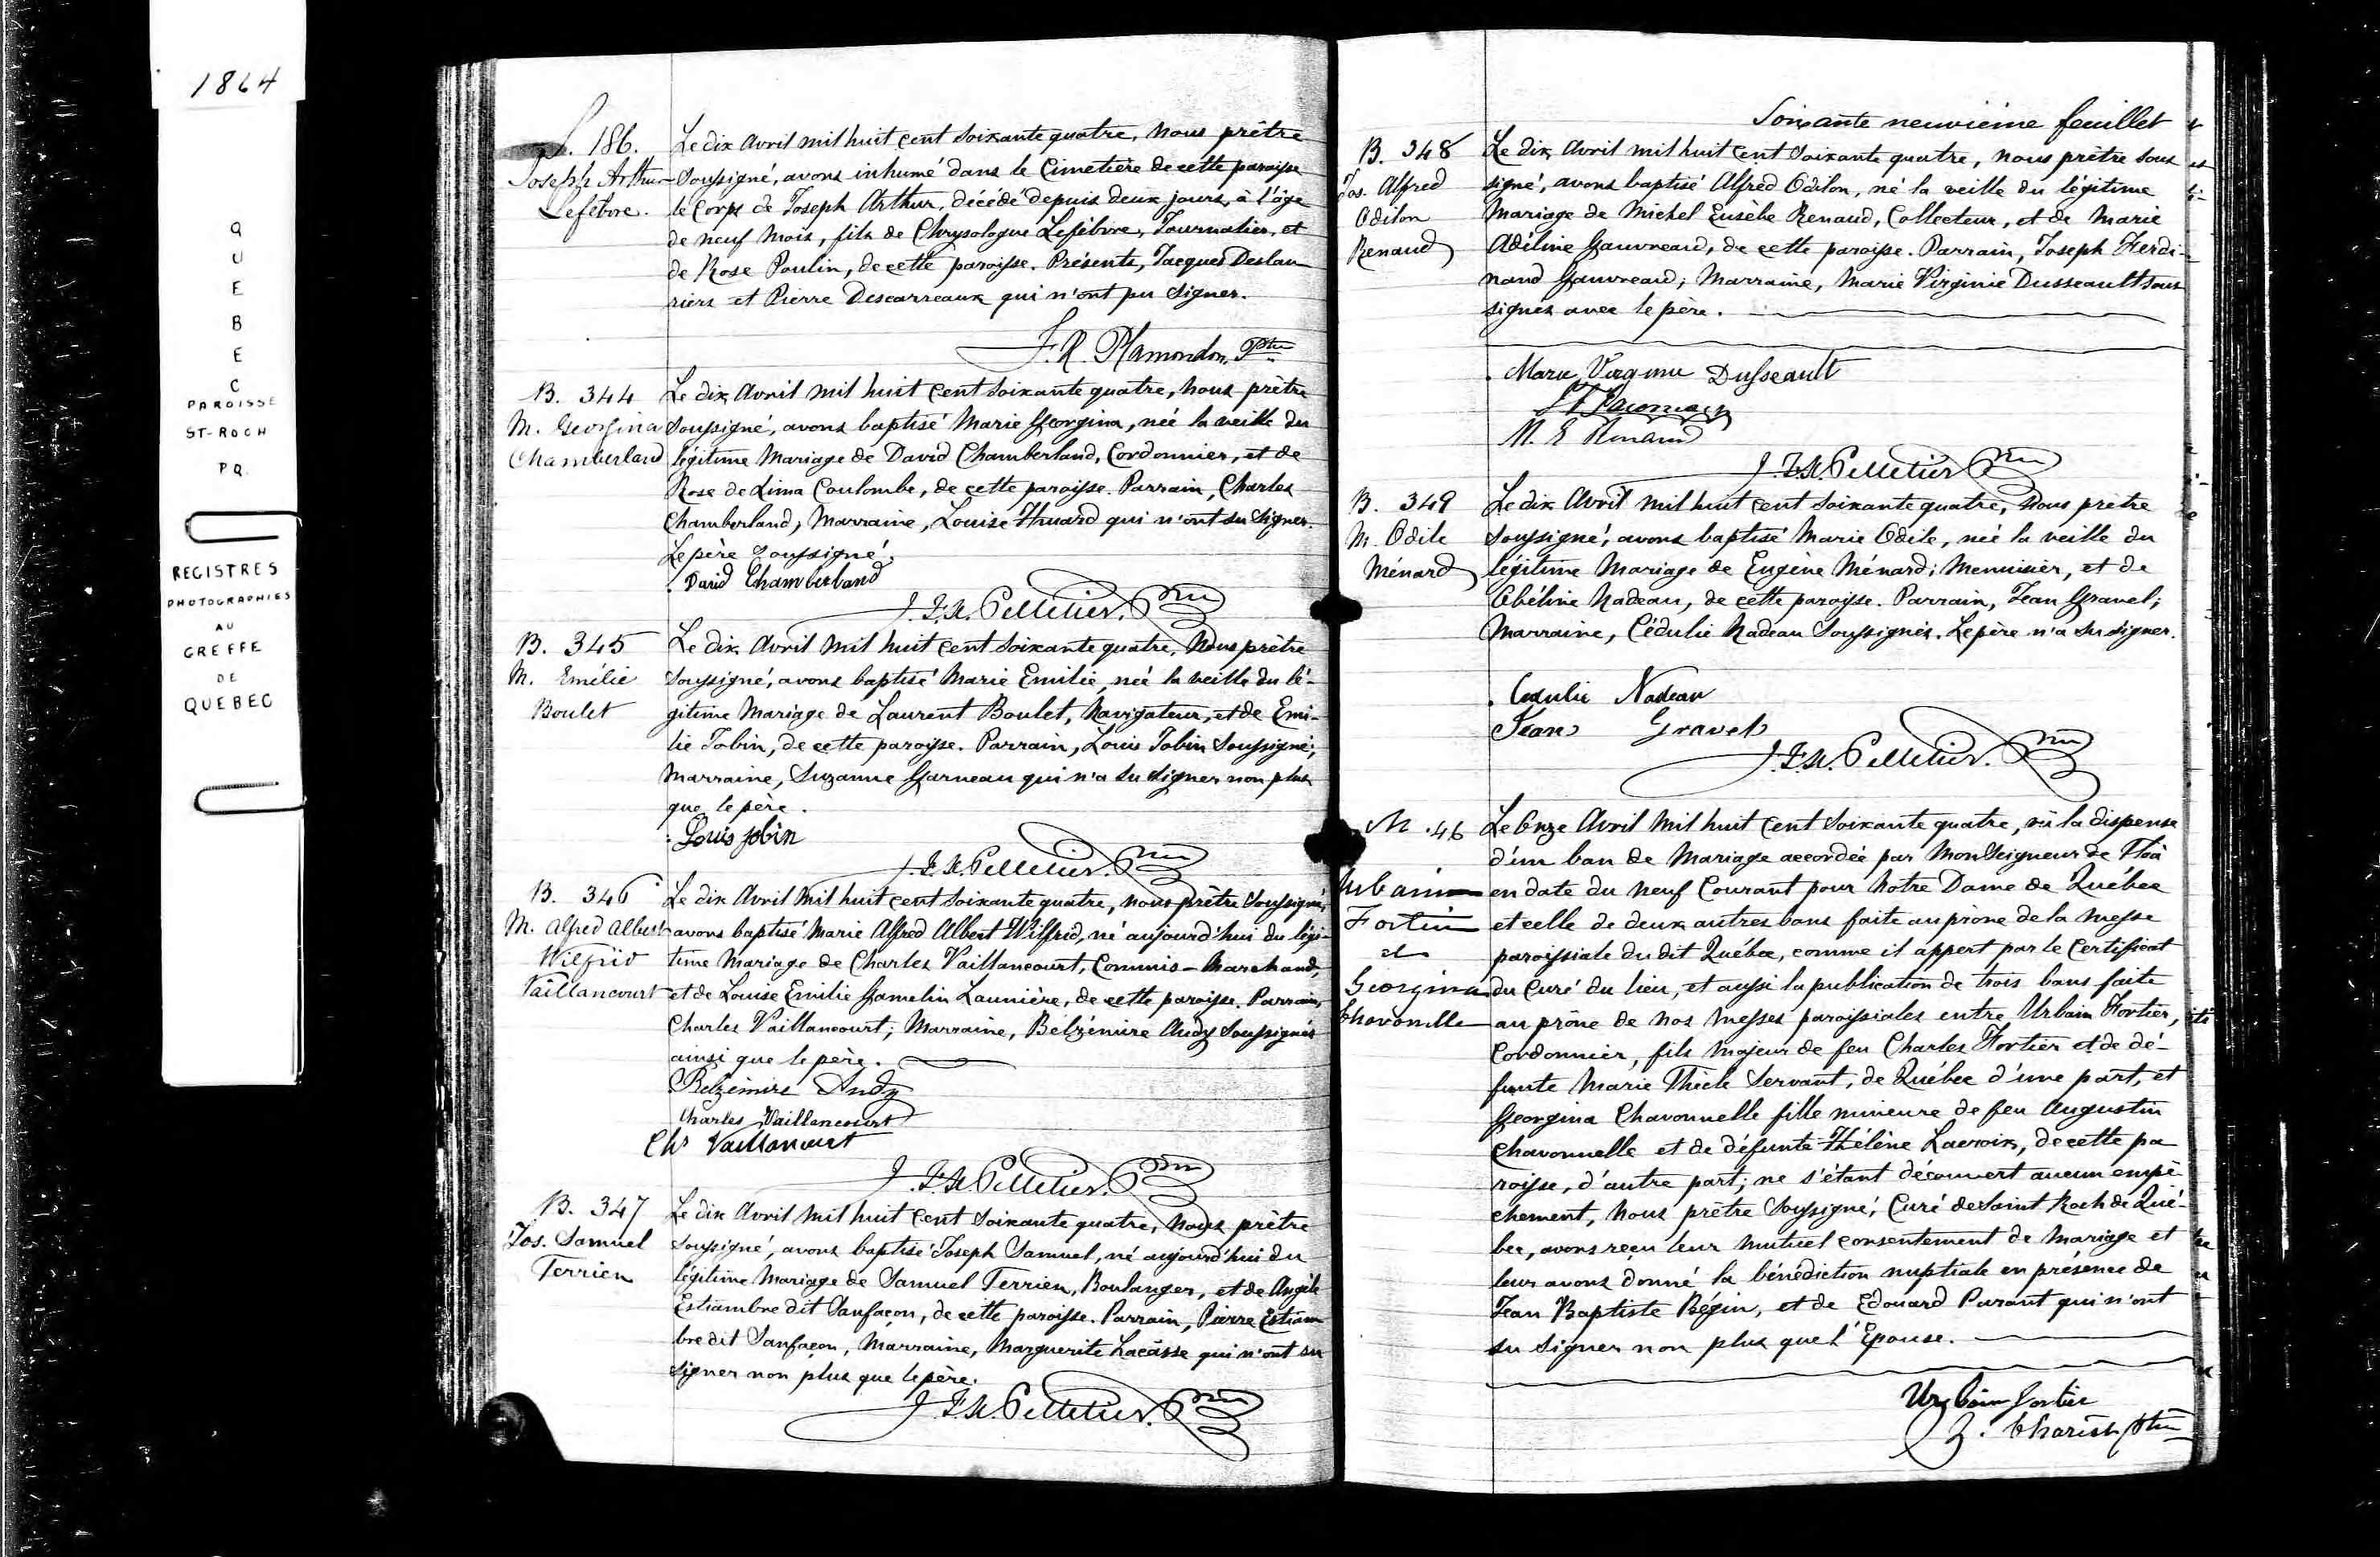 1864
QUEBEC
PAROISSE
ST-ROCH
PQ.
REGISTRES
PHOTOGRAPHIES
AU
GREFFE
DE
QUEBEC
S. 186.
Joseph Arthur
Lefebvre.
Le dix Avril mil huit cent soixante quatre, Nous prêtre
soussigné, avons inhumé dans le Cimetière de cette paroisse
le Corps de Joseph Arthur, décédé depuis deux jours, à l'âge
de neuf Mois, fils de Chrysologue Lefebvre, Journalier, et
de Rose Poulin, de cette paroisse. Présents, Jacques Deslau
riers et Pierre Descarreaux qui n'ont pu signer.
F. R. Plamondon, Ptre
B. 344
M. Georgina
Chamberland
Le dix Avril mil huit cent soixante quatre, Nous prêtre
soussigné, avons baptisé Marie Georgina, née la veille du
légitime Mariage de David Chamberland, Cordonnier, et de
Rose de Lima Coulombe, de cette paroisse. Parrain, Charles
Chamberland, Marraine, Louise Huard qui n'ont su signer.
Le père soussigné.
David Chamberland
J. F. N. Pelletier. Ptre
B. 345
M. Emélie
Boulet
Le dix Avril mil huit cent soixante quatre, Nous prêtre
soussigné, avons baptisé Marie Emilie, née la veille du lé-
gitime Mariage de Laurent Boulet, Navigateur, et de Emi-
lie Jobin, de cette paroisse. Parrain, Louis Jobin soussigné;
Marraine, Suzanne Garneau qui n'a su signer non plus
que le père.
Louis Jobin
J. F. N. Pelletier. Ptre
B. 346
M. Alfred Albert
Wilfrid
Vaillancourt
Le dix Avril mil huit cent soixante quatre, nous prêtre soussigné,
avons baptisé Marie Alfred Albert Wilfrid, né aujourd'hui du légi-
time Mariage de Charles Vaillancourt, Commis-Marchand,
et de Louise Emilie Gamelin Launière, de cette paroisse. Parrain,
Charles Vaillancourt; Marraine, Belzémire Audy soussignés
ainsi que le père.
Belzémire Audy
Charles Vaillancourt
Chs Vaillancourt
J. F. N. Pelletier. Ptre
B. 347
Jos. Samuel
Terrien
Le dix Avril mil huit cent soixante quatre, Nous prêtre
soussigné, avons baptisé Joseph Samuel, né aujourd'hui du
légitime Mariage de Samuel Terrien, Boulanger, et de Angèle
Estiambre dit Sanfaçon, de cette paroisse. Parrain, Pierre Estiam
bre dit Sanfaçon, Marraine, Marguerite Lacasse qui n'ont su
signer non plus que le père.
J. F. N. Pelletier. Ptre
Soixante neuvième feuillet
B. 348
Jos. Alfred
Odilon
Renaud
Le dix Avril mil huit cent soixante quatre, nous prêtre sous
signé, avons baptisé Alfred Odilon, né la veille du légitime
Mariage de Michel Eusèbe Renaud, Collecteur, et de Marie
Adéline Gauvreau, de cette paroisse. Parrain, Joseph Ferdi-
nand Gauvreau; Marraine, Marie Virginie Dusseault sous
signés avec le père.
Marie Virginie Dusseault
M. E Renaud
J. F. N. Pelletier Ptre
B. 349
M. Odile
Ménard
Le dix Avril mil huit cent soixante quatre, Nous prêtre
soussigné, avons baptisé Marie Odile, née la veille du
légitime Mariage de Eugène Ménard; Menuisier, et de
Obéline Nadeau, de cette paroisse. Parrain, Jean Gravel;
Marraine, Cédulie Nadeau soussignés. Le père n'a su signer.
Cedulie Nadeau
Jean Gravel
J. F. N. Pelletier. Ptre
M. 46
Urbain
Fortier
et
Georgina
Chavonelle
Le Onze Avril mil huit cent soixante quatre, vû la dispense
d'un ban de Mariage accordée par Monseigneur de Tloà
en date du neuf Courant pour Notre Dame de Québec
et celle de deux autres bans faite au prône de la Messe
paroissiale du dit Québec, comme il appert par le Certificat
du Curé du lieu, et aussi la publication de trois bans faite
au prône de nos Messes paroissiales entre Urbain Fortier,
Cordonnier, fils Majeur de feu Charles Fortier et de dé-
funte Marie Thècle Servant, de Québec d'une part, et
Georgina Chavonnelle fille mineure de feu Augustin
Chavonnelle et de défunte Hélène Lacroix, de cette pa
roisse, d'autre part; ne s'étant découvert aucun empê
chement, Nous prêtre soussigné, Curé de Saint Roch de Qué-
bec, avons reçu leur mutuel consentement de Mariage et
leur avons donné la bénédiction nuptiale en présence de
Jean Baptiste Bégin, et de Edouard Parant qui n'ont
su signer non plus que l'Epouse.
Urbain Fortier
Z. Charest Ptre